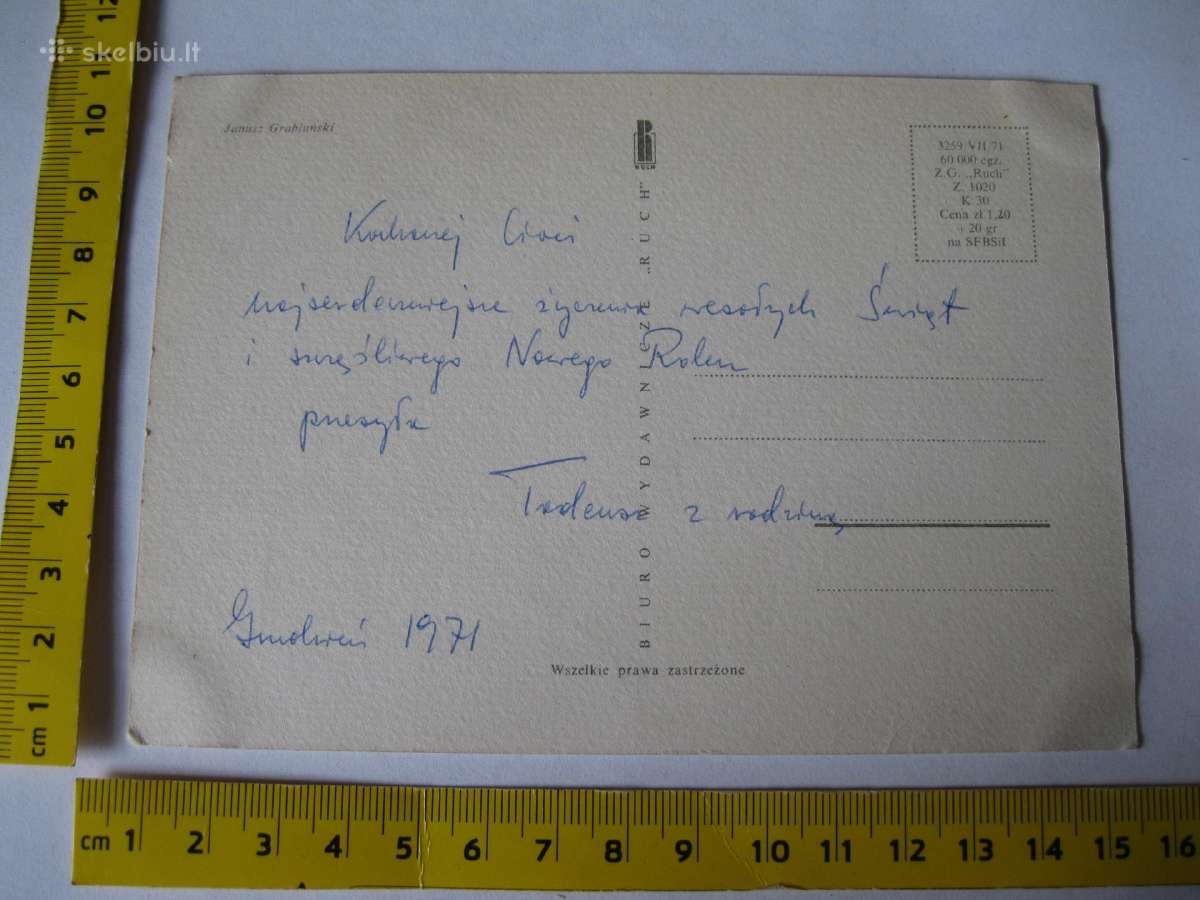 skelbiu.lt
Janusz Grabiański
RUCH
3259 VII/71
60 000 egz.
Z.G. „Ruch"
Z. 1020
K 30
Cena zł 1,20
+ 20 gr
na SFBSiI
Kochanej Cioci
najserdeczniejsze życzenia wesołych Świąt
i szczęśliwego Nowego Roku
przesyła
Tadeusz z rodziną
Grudzień 1971
BIURO WYDAWNICZE „RUCH"
Wszelkie prawa zastrzeżone
cm 1 2 3 4 5 6 7 8 9 10 11 12
cm 1 2 3 4 5 6 7 8 9 10 11 12 13 14 15 16